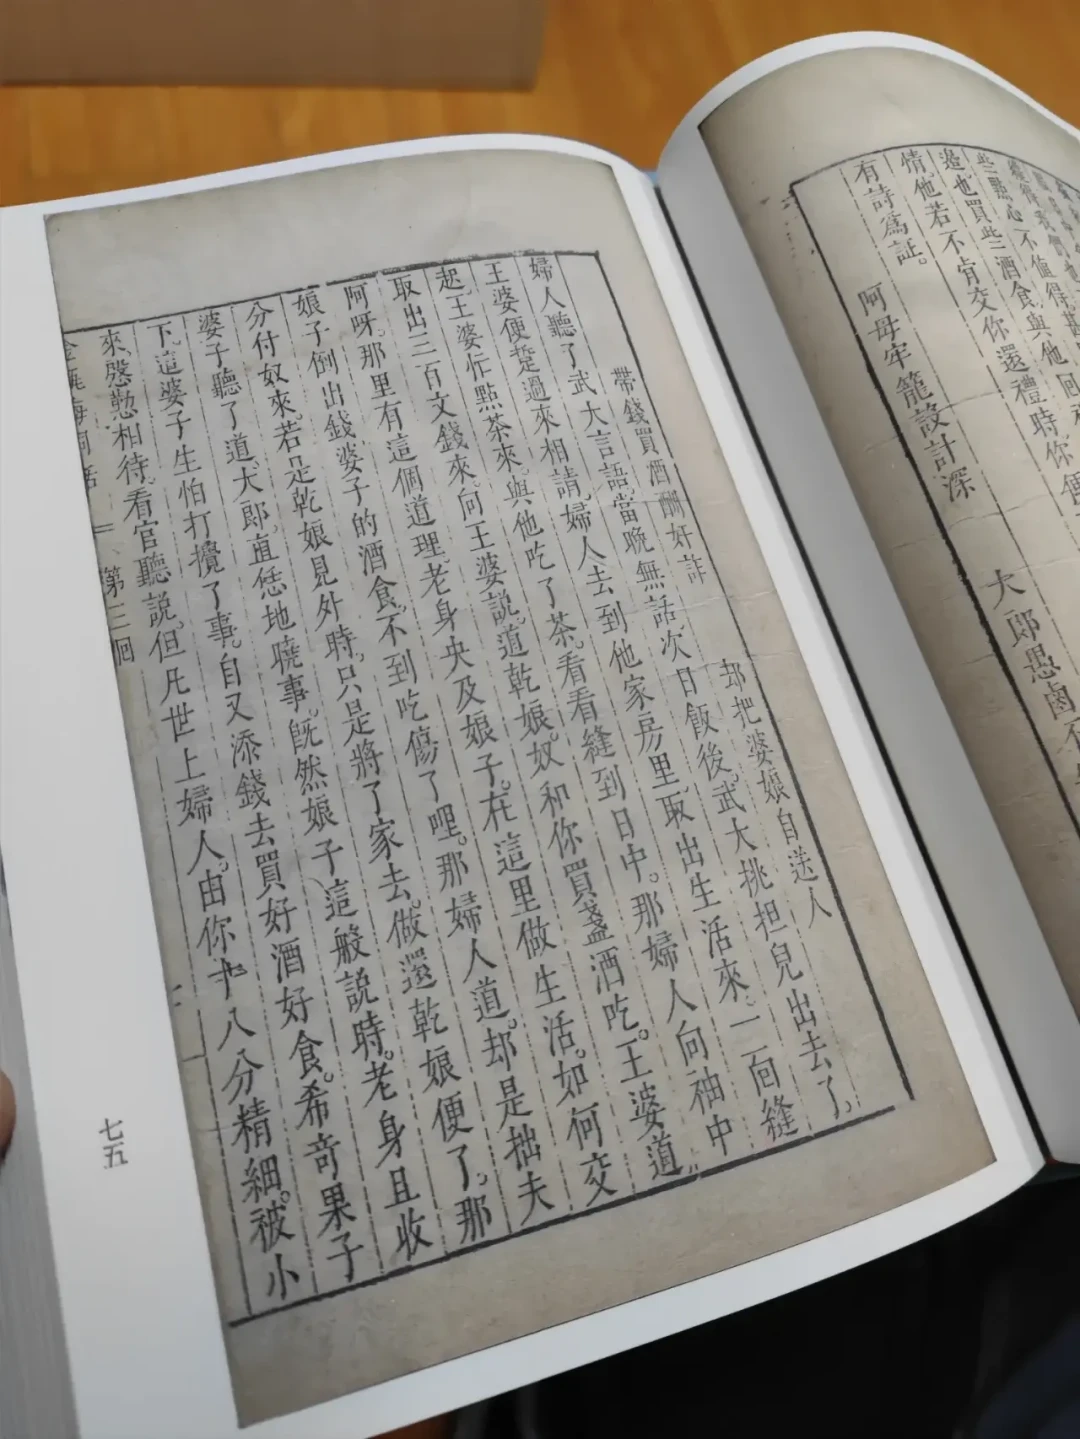 些點心不值得甚
邊也買些酒食與他回
情他若不肯交你還禮時你便
有詩爲証。
阿母牢籠設計深　大郎愚鹵不
帶錢買酒酬奸詐　却把婆娘自送人
婦人聽了武大言語。當晚無話次日飯後。武大挑担兒出去了。
王婆便踅過來相請。婦人去到他家房里取出生活來。一面縫
起。王婆忙點茶來。與他吃了茶。看看縫到日中。那婦人向袖中
取出三百文錢來。向王婆說。道乾娘。奴和你買盞酒吃。王婆道
阿呀。那里有這個道理。老身央及娘子。在這里做生活。如何交
娘子倒出錢。婆子的酒食。不到吃傷了哩。那婦人道。却是拙夫
分付奴來。若是乾娘見外時。只是將了家去。做還乾娘便了。那
婆子聽了道。大郎。直恁地曉事。既然娘子這般說時。老身且收
下。這婆子生怕打攪了事。自又添錢去買好酒好食。希奇果子
來。慇懃相待。看官聽說。但凡世上婦人。由你十八分精細。被小
金瓶梅詞話　第三回
七五